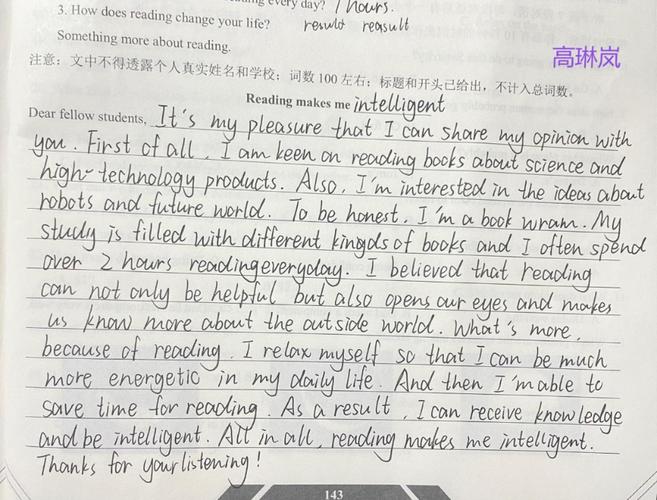 every day? 1 hours.
3. How does reading change your life? result reasult
Something more about reading.
高琳岚
注意：文中不得透露个人真实姓名和学校；词数 100 左右；标题和开头已给出，不计入总词数。
Reading makes me intelligent
Dear fellow students, It's my pleasure that I can share my opinion with
you. First of all, I am keen on reading books about science and
high-technology products. Also, I'm interested in the ideas about
robots and future world. To be honest, I'm a book wram. My
study is filled with different kingds of books and I often spend
over 2 hours reading everyday. I believed that reading
can not only be helpful but also opens our eyes and makes
us know more about the outside world. What's more,
because of reading, I relax myself so that I can be much
more energetic in my daily life. And then I'm able to
save time for reading. As a result, I can receive knowledge
and be intelligent. All in all, reading makes me intelligent.
Thanks for your listening!
143